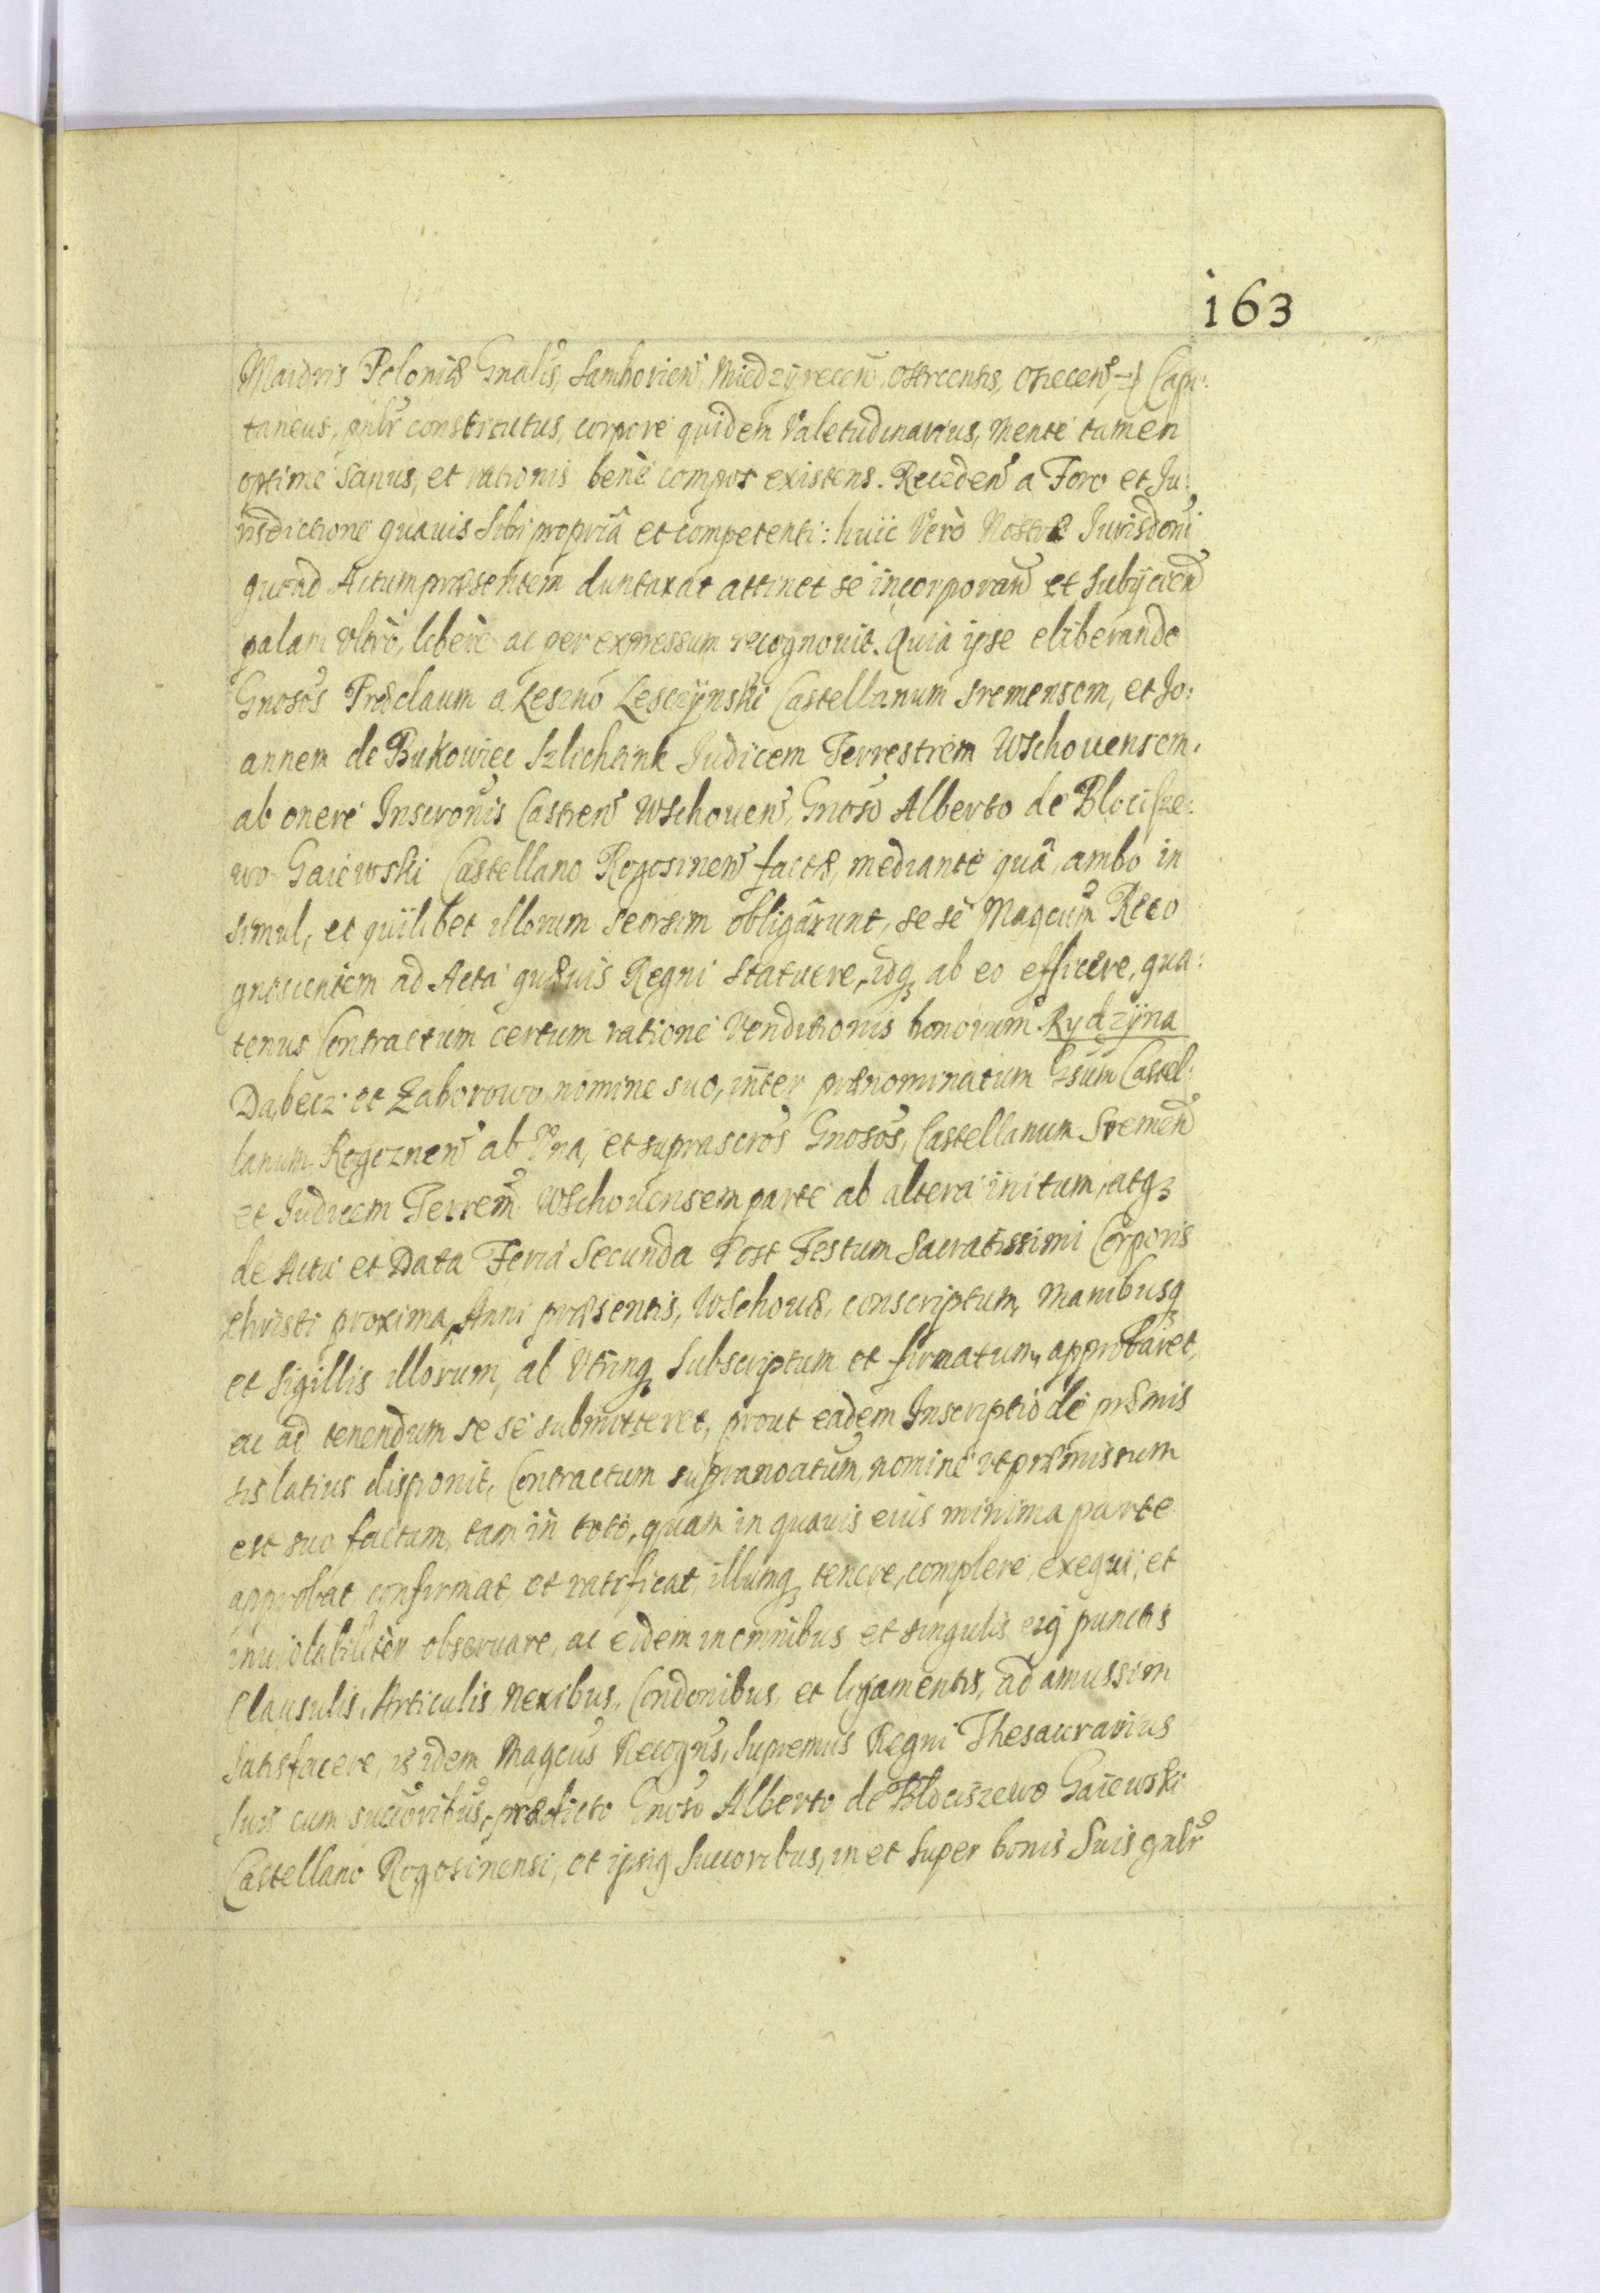 163
Maioris Poloniæ Gnãlis, Samborien̄, Miedzyrecen̄, Ostrecensis, Osiecen̄ Capi:
taneus, pnlr constitutus, corpore quidem Valetudinarius, Mente tamen
optime Sanus, et rationis benè compos existens. Receden̄ a Foro et Ju:
risdictione quauis Sibi propriâ et competenti: huic Verò Nostræ Jurisdōni
quoad Actum præsentem duntaxat attinet se incorporan̄ et Subijcien̄
palam vltrò, liberè ac per expressum recognouit. Quia ipse eliberando
Gnosos Prædclaum a Leszno Lesczÿnski Castellanum Sremensem, et Jo:
annem de Bukowiec Szlichtink Judicem Terrestrem Wschouensem,
ab onere Inscrōnis Castren̄ Wschouen̄, Gnoso Alberto de Blocisze:
wo Gaiewski Castellano Rogosinen̄ factæ, mediante quâ, ambo in
simul, et quilibet illorum seorsim obligârunt, se se Magcum Reco
gnoscentem ad Acta quæuis Regni Statuere, idq ab eo efficere, qua:
tenus Contractum certum ratione Venditionis bonorum Rydzÿna
Dabecz et Zaborowo nomine suo, inter prænominatum Gsum Castel:
lanum Rogoznen̄ ab Vna, et suprascros Gnosos, Castellanum Sremen̄
et Judicem Terren̄ Wschouensem parte ab altera initum, atq
de Actu et Data Feria Secunda Post Festum Sacratissimi Corporis
Christi proxima, Anni præsentis, Wschouæ, conscriptum, Manibusq
et Sigillis illorum, ab Vtrinq Subscriptum et firmatum, approbaret,
ac ad tenendum se se submitteret, prout eadem Inscriptio de præmis
sis latius disponit, Contractum supranoatum, nomine vt præmissum
est suo factum, tam in toto, quam in quauis eius minima parte
approbat, confirmat, et ratificat, illumq tenere, complere, exequi, et
inuiolabiliter obseruare, ac eidem in omnibus et singulis eiq punctis
Clausulis, Articulis, Nexibus, Condonibus, et ligamentis, ad amussim
Satisfacere, is idem Magcus Recogns, Supremus Regni Thesaurarius
Suis cum succoribus, prædicto Gnoso Alberto de Blociszewo Gaiewski
Castellano Rogosinensi, et ipsiq Succoribus, in et Super bonis Suis gnlr